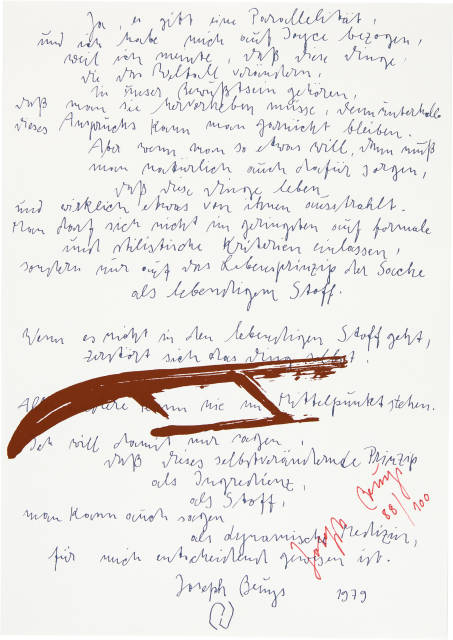 Ja, es gibt eine Parallelität,
und ich habe mich auf Joyce bezogen,
weil ich meinte, daß diese Dinge,
die das Weltall verändern,
in unser Bewußtsein gehören,
daß man sie hervorheben müsse, denn unterhalb
dieses Anspruchs kann man garnicht bleiben.
Aber wenn man so etwas will, dann muß
man natürlich auch dafür sorgen,
daß diese Dinge leben
und wirklich etwas von ihnen ausstrahlt.
Man darf sich nicht im geringsten auf formale
und stilistische Kriterien einlassen,
sondern nur auf das Lebensprinzip der Sache
als lebendigem Stoff.
Wenn es nicht in den lebendigen Stoff geht,
zerstört sich das Ding selbst.
kann nie im Mittelpunkt stehen.
Ich will damit nur sagen,
daß dieses selbstverändernde Prinzip
als Ingredienz,
als Stoff,
man kann auch sagen
als dynamische Medizin,
für mich entscheidend gewesen ist.
Joseph Beuys 1979
Joseph Beuys
88/100